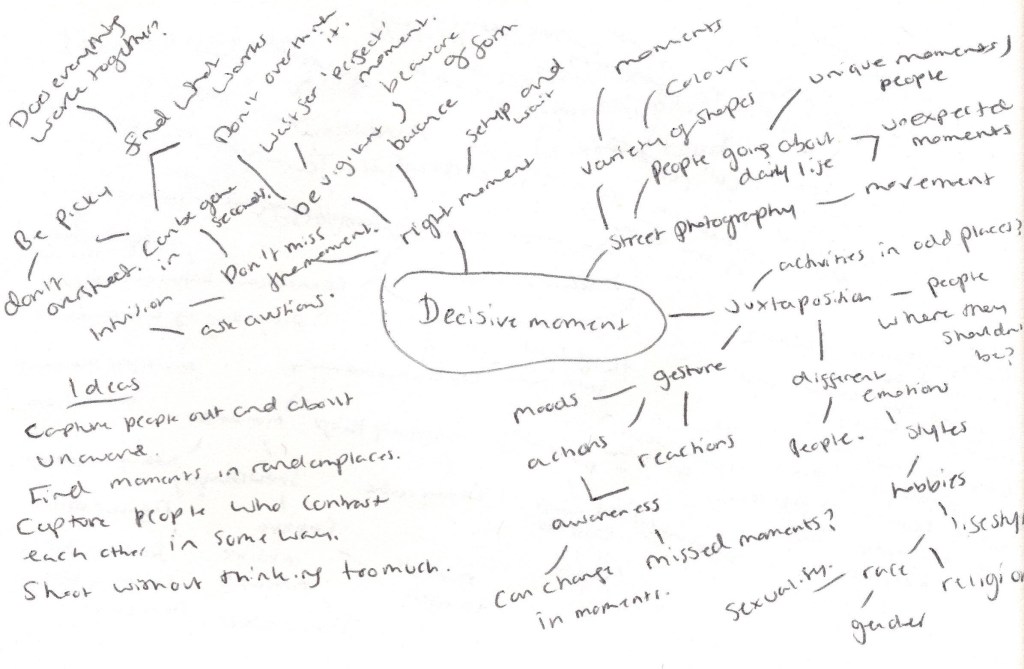 Does everything
work together?
find what
works
Don't overthink
it.
wait for 'perfect'
moment.
be aware
of form
be vigilant
balance
setup and
wait
Be picky
don't
overshoot.
Can be gone
in seconds.
Don't miss
the moment.
Intuision
ask questions.
right moment
moments
colours
variety of shapes
unique moments/
people
people going about
daily life
unexpected
moments
Street photography
movement
Decisive moment
activities in odd places?
Juxtaposition
people
where they
shouldn't
be?
gesture
moods
actions
reactions
awareness
can change
in moments.
missed moments?
different
emotions
people.
styles
hobbies
lifestyle
race
sexuality.
gender
religion
Ideas
Capture people out and about
unaware.
Find moments in random places.
Capture people who contrast
each other in some way.
Shoot without thinking too much.